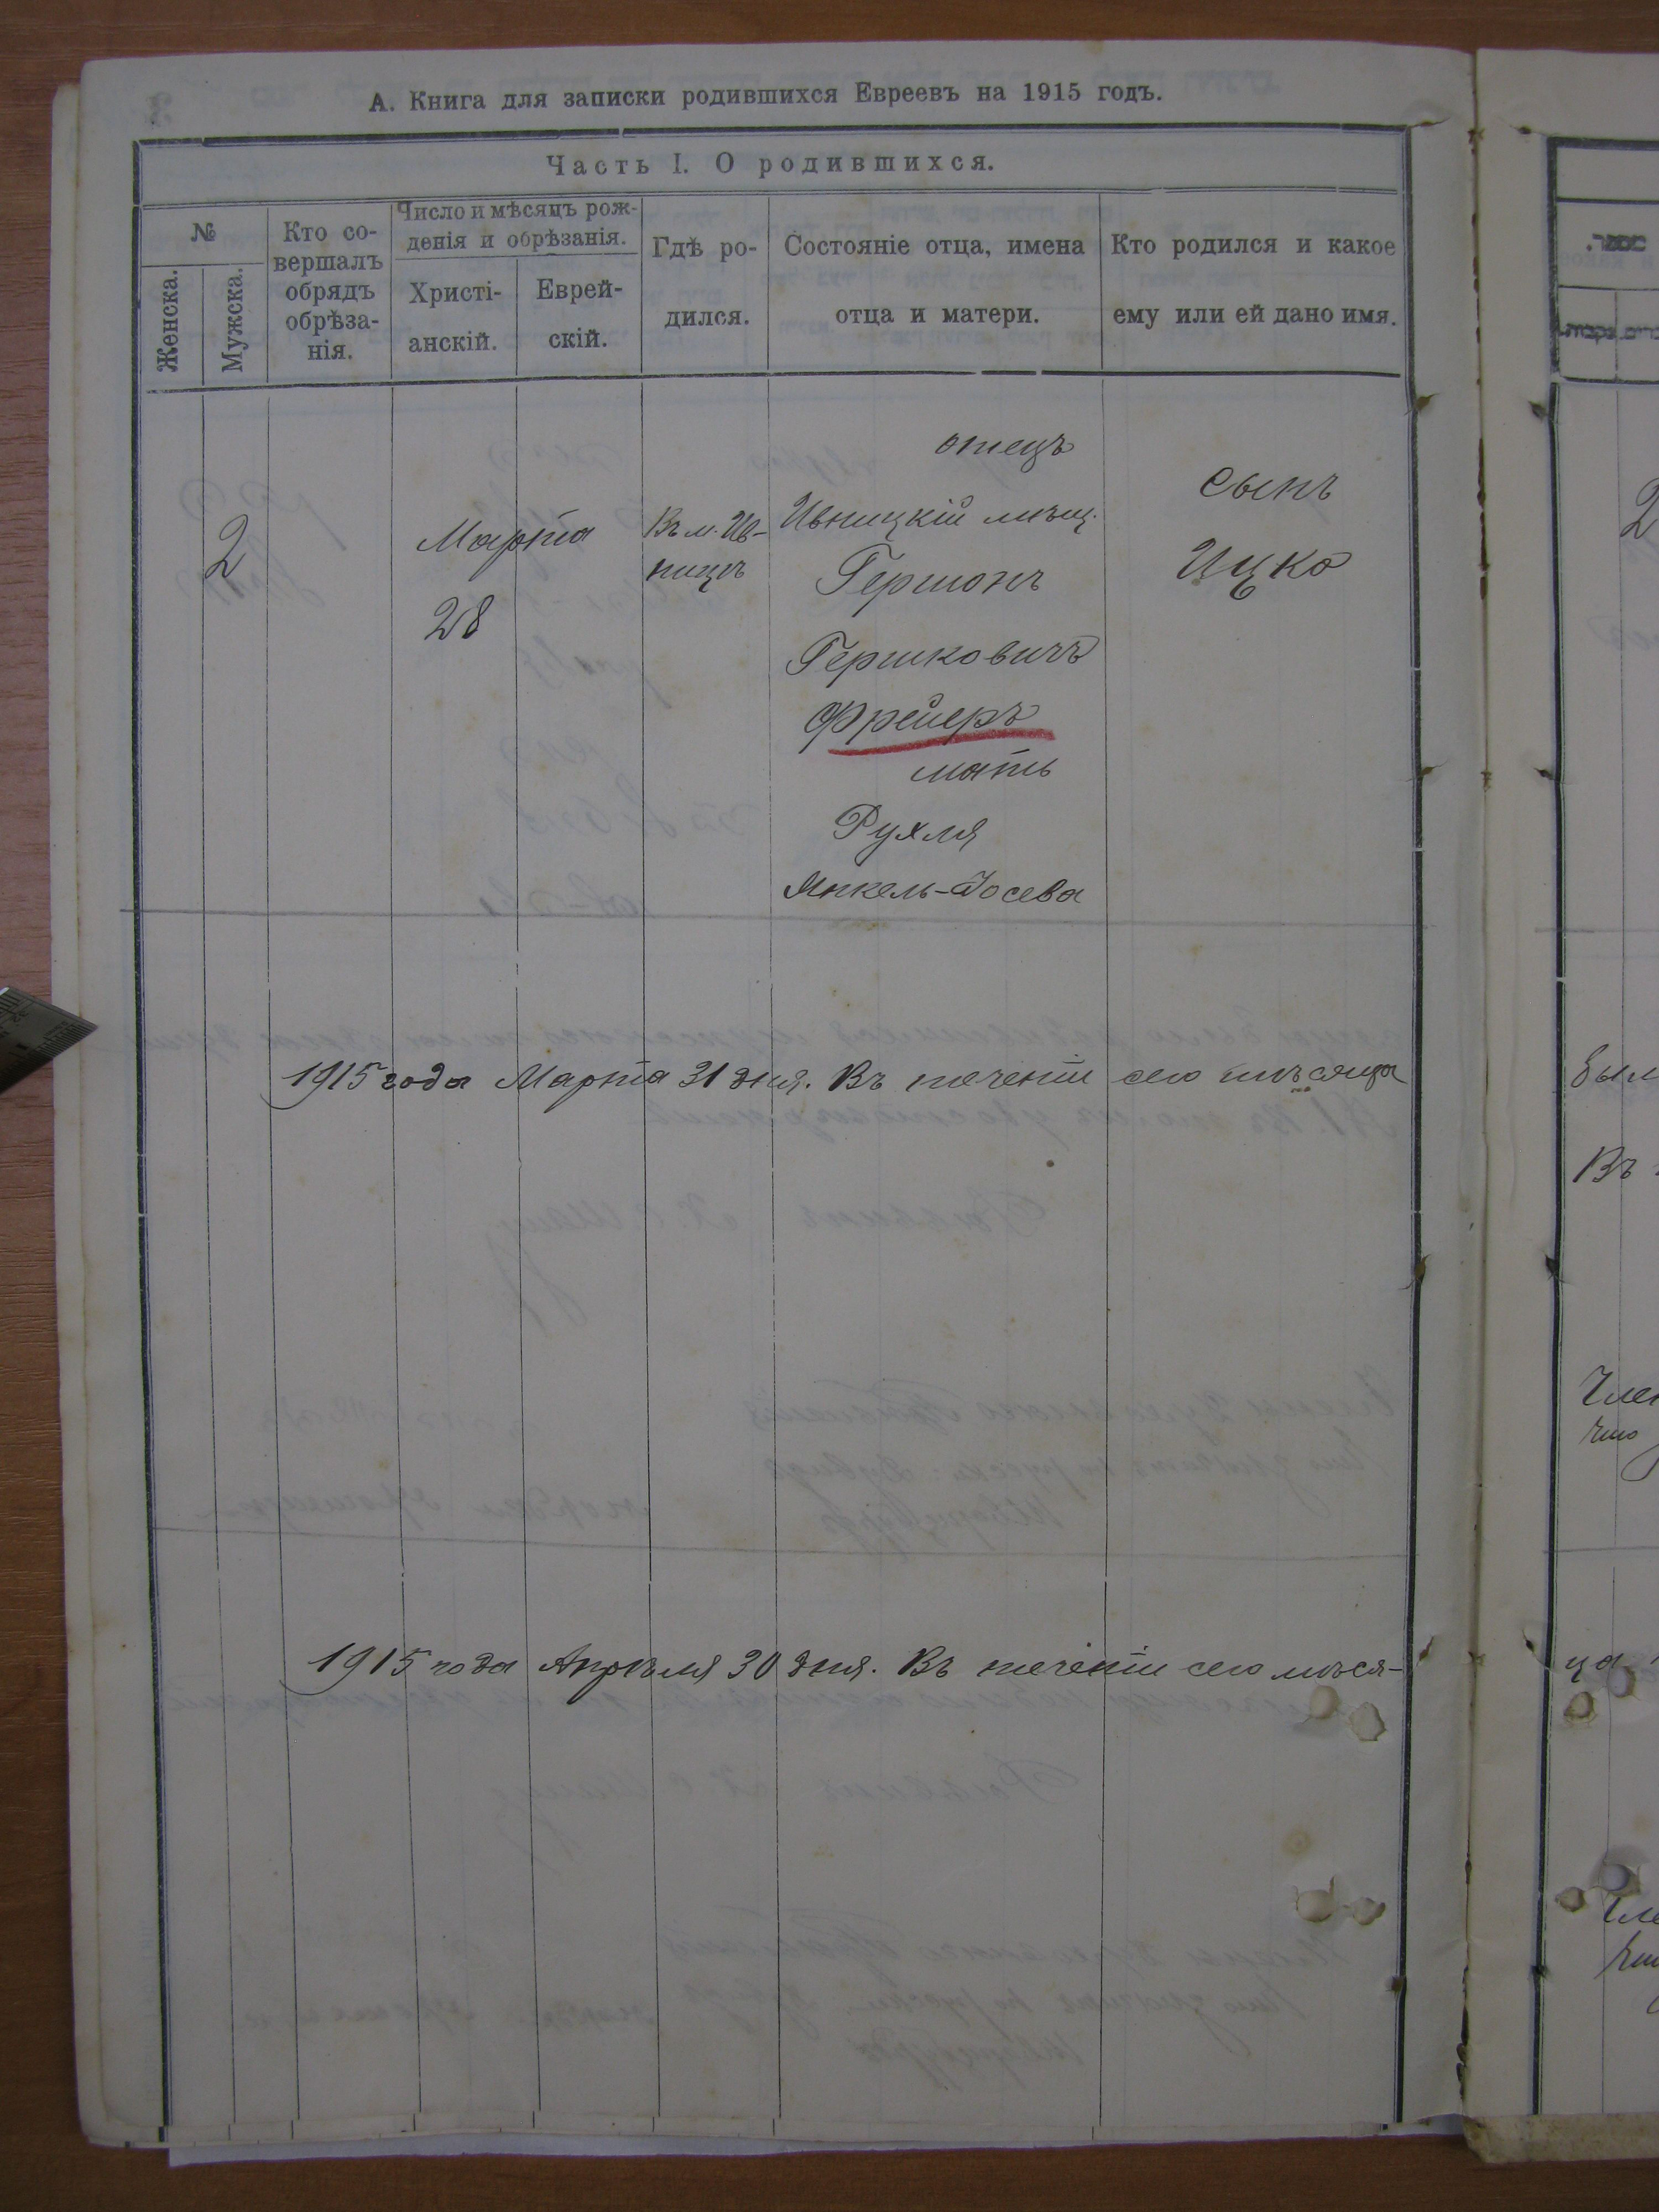 А. Книга для записки родившихся Евреевъ на 1915 годъ.
Часть I. О родившихся.
№
Женска.
Мужска.
Кто со-
вершалъ
обрядъ
обрѣза-
нія.
Число и мѣсяцъ рож-
денія и обрѣзанія.
Христі-
анскій.
Еврей-
скій.
Гдѣ ро-
дился.
Состояніе отца, имена
отца и матери.
Кто родился и какое
ему или ей дано имя.
2
Марта
28
Въ м. Ив-
ницѣ
отецъ
Ивницкій мѣщ.
Гершонъ
Гершковичъ
Фрейеръ
мать
Рухля
Янкель-Іосева
сынъ
Ицко
1915 года Марта 31 дня. Въ теченіи сего мѣсяца
1915 года Апрѣля 30 дня. Въ теченіи сего мѣся-
2
Въ
ца